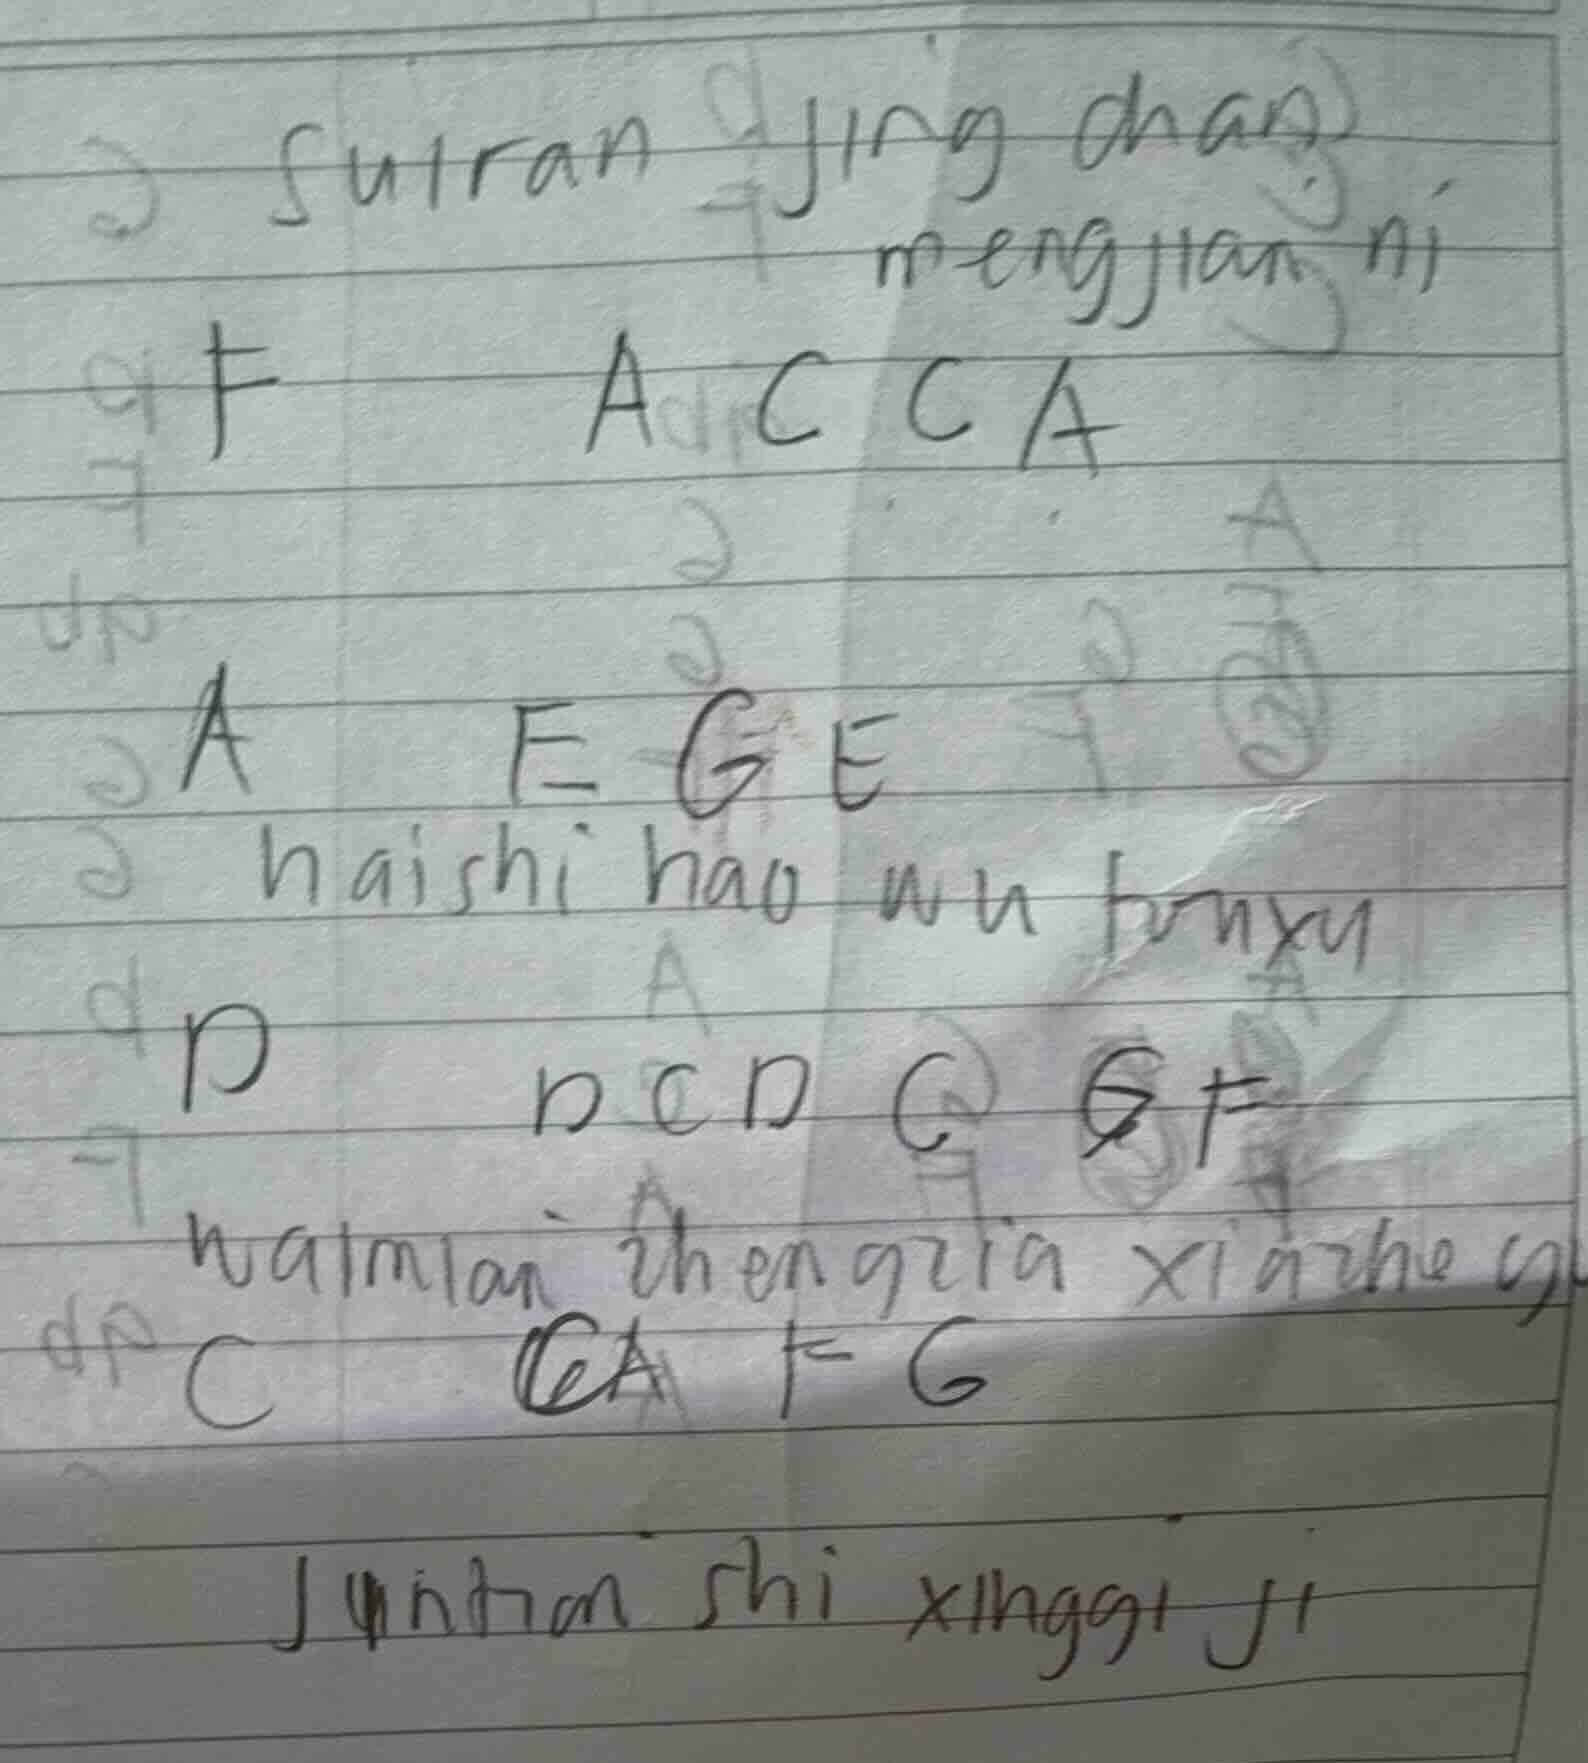 suiran jing chan
mengjian ni
F A C C A
A E G E
haishi hao wu touxu
D D C D C G F
waimian zhengzia xiazhe yu
C G A F G
Jintian shi xinggi ji